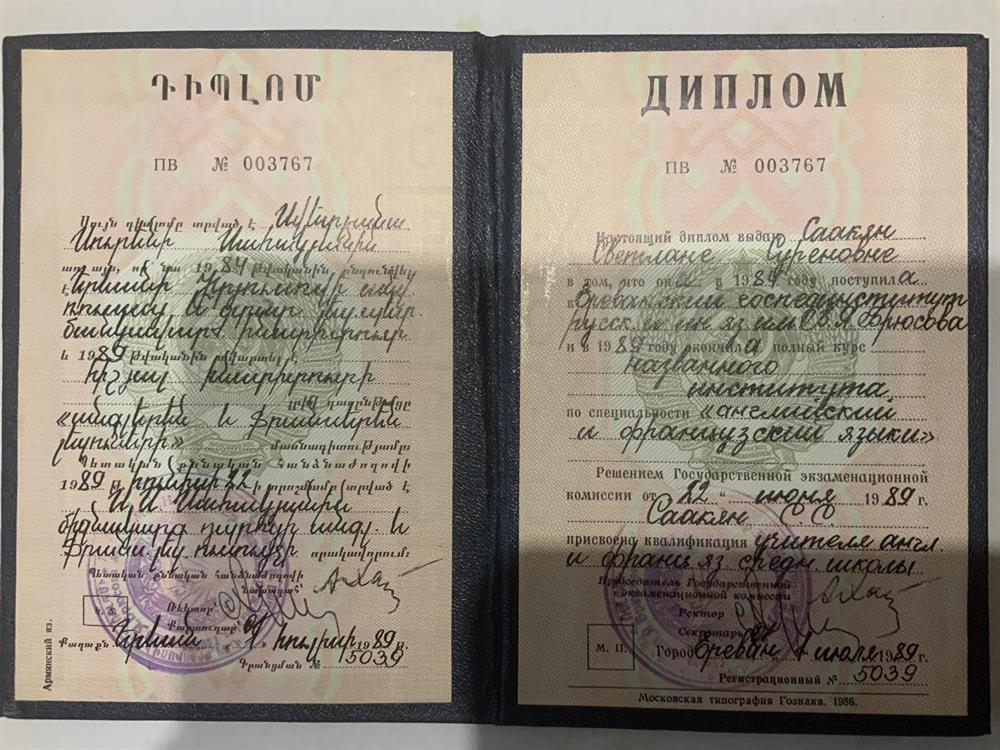 ԴԻՊԼՈՄ
ПВ № 003767
Սույն դիպլոմը տրված է
Սուրենի Սահակյանին
առ այն, որ նա 1984 թվականին ընդունվել
է Երևանի
և 1989 թվականին ավարտել է
հիշյալ ինստիտուտի
լրիվ դասընթացը
«անգլերեն և ֆրանսերեն
լեզուներ» մասնագիտությամբ
Պետական քննական հանձնաժողովի
1989 թ. հունիսի 22-ի որոշմամբ տրված է
Ս. Ս. Սահակյանին
միջնակարգ դպրոցի անգլ. և
ֆրանս. լեզ. ուսուցչի որակավորում:
Պետական քննական հանձնաժողովի
նախագահ՝
Ռեկտոր՝
Քարտուղար՝
Քաղաքը Երևան 1 հուլիսի 1989 թ.
Գրանցման № 5039
Армянский яз.
ДИПЛОМ
ПВ № 003767
Настоящий диплом выдан Саакян
Светлане Суреновне
в том, что она в 1984 году поступила
в Ереванский госпединститут
русск. и ин. яз. им. В. Я. Брюсова
и в 1989 году окончила полный курс
названного
института
по специальности «английский
и французский языки»
Решением Государственной экзаменационной
комиссии от „22“ июня 1989 г.
Саакян С. С.
присвоена квалификация учителя англ.
и франц. яз. средн. школы
Председатель Государственной
экзаменационной комиссии
Ректор
Секретарь
М. П.
Город Ереван 1 июля 1989 г.
Регистрационный № 5039
Московская типография Гознака. 1986.